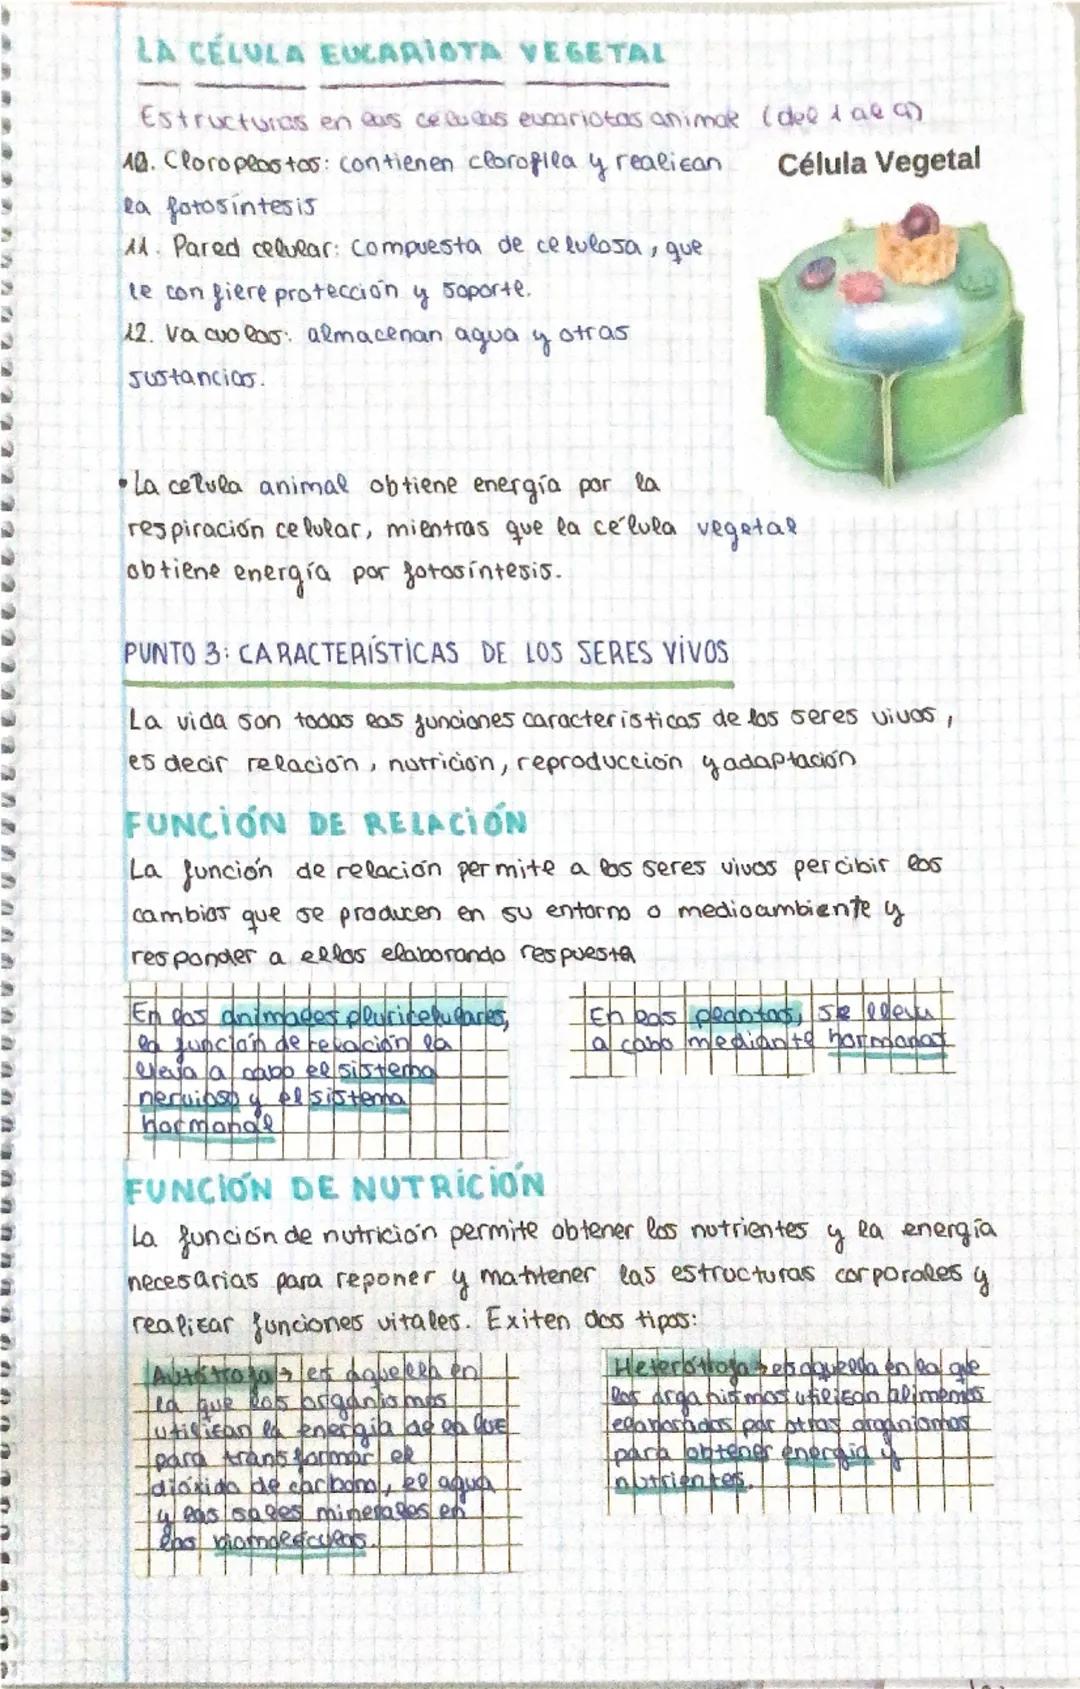 LA CÉLULA EUCARIOTA VEGETAL
Estructuras en las celulas eucariotas animal (del 1 al 9)
10. Cloroplastos: contienen clorofila y realizan
la fotosíntesis
11. Pared celular: compuesta de celulosa, que
le confiere protección y soporte.
12. Vacuolas: almacenan agua y otras
sustancias.
Célula Vegetal
• La celula animal obtiene energía por la
respiración celular, mientras que la célula vegetal
obtiene energía por fotosíntesis.
PUNTO 3: CARACTERÍSTICAS DE LOS SERES VIVOS
La vida son todas las funciones características de los seres vivos,
es decir relación, nutrición, reproducción y adaptación
FUNCIÓN DE RELACIÓN
La función de relación permite a los seres vivos percibir los
cambios que se producen en su entorno o medioambiente y
responder a ellos elaborando respuesta
En los animales pluricelulares,
la función de relación la
lleva a cabo el sistema
nervioso y el sistema
hormonal
En las plantas, se lleva
a cabo mediante hormonas
FUNCIÓN DE NUTRICIÓN
La función de nutrición permite obtener los nutrientes y la energía
necesarias para reponer y mantener las estructuras corporales y
realizar funciones vitales. Exiten dos tipos:
Autótrofa → es aquella en
la que los organismos
utilizan la energía de la luz
para transformar el
dióxido de carbono, el agua
y las sales minerales en
las biomoléculas.
Heterótrofa → es aquella en la que
los organismos utilizan alimentos
elaborados por otros organismos
para obtener energía y
nutrientes.